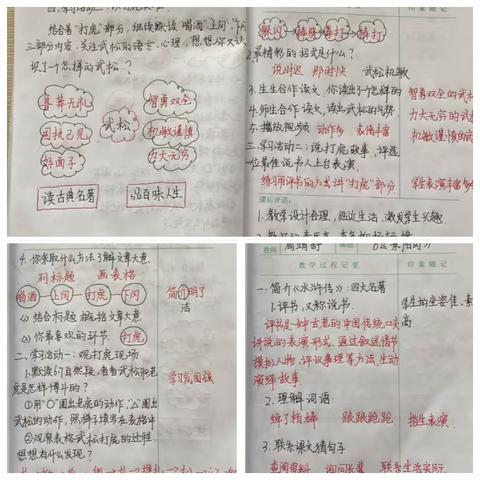 结合着"打虎"部分,继续默读"喝酒""上冈""下冈"
三部分内容,关注武松的语言、心理,想想你又认
识了一个怎样的武松?
鲁莽无礼
固执己见
好面子
武松
智勇双全
机敏谨慎
力大无穷
读古典名著
品百味人生
印象随记
躲闪
棒打
揍打
2.最精彩的招式是什么?
说时迟 那时快 武松机敏
3.生生合作读文,你读出了个怎样的
4.师生合作读文,读出武松的气势
5.播放视频 动作多 表情丰富
智勇双全的武
力大无穷的武
机敏谨慎的
二、学习活动二:说打虎故事,评选
位最佳说书人上台表演.
练习用评书的方式讲"打虎"部分
学生表演丰富
课后评语:
1.教学设计合理,贴近生活,激发学生兴趣.
4.你采取什么方法了解文章大意.
列标题 画表格
喝酒 上冈 打虎 下冈
简介明了
洁
(1)结合标题概括文章大意.
(2)你最喜欢的环节.
打虎
二、学习活动一:观打虎现场
1.默读自然段,看看武松和老
虎是怎样搏斗的?
①用"○"圈出老虎的动作,"△"圈出
武松的动作,照样子填写在表格中
②观察表格武松打虎的过程
想想有什么发现?
学习氛围强
教师
课题
教学过程记要
印象随记
一、简介《水浒传》:四大名著
1.评书,又称说书.
学生的坐姿佳、素
高
评书是一种古老的中国传统口头
讲说的表演形式,通过叙述情节
模拟人物、评议事理等方法,生动
演绎故事
2.理解词语:
绰了梢棒 踉踉跄跄
指生表演.
3.联系课文猜句子
查阅资料 询问长辈 联系生活实际